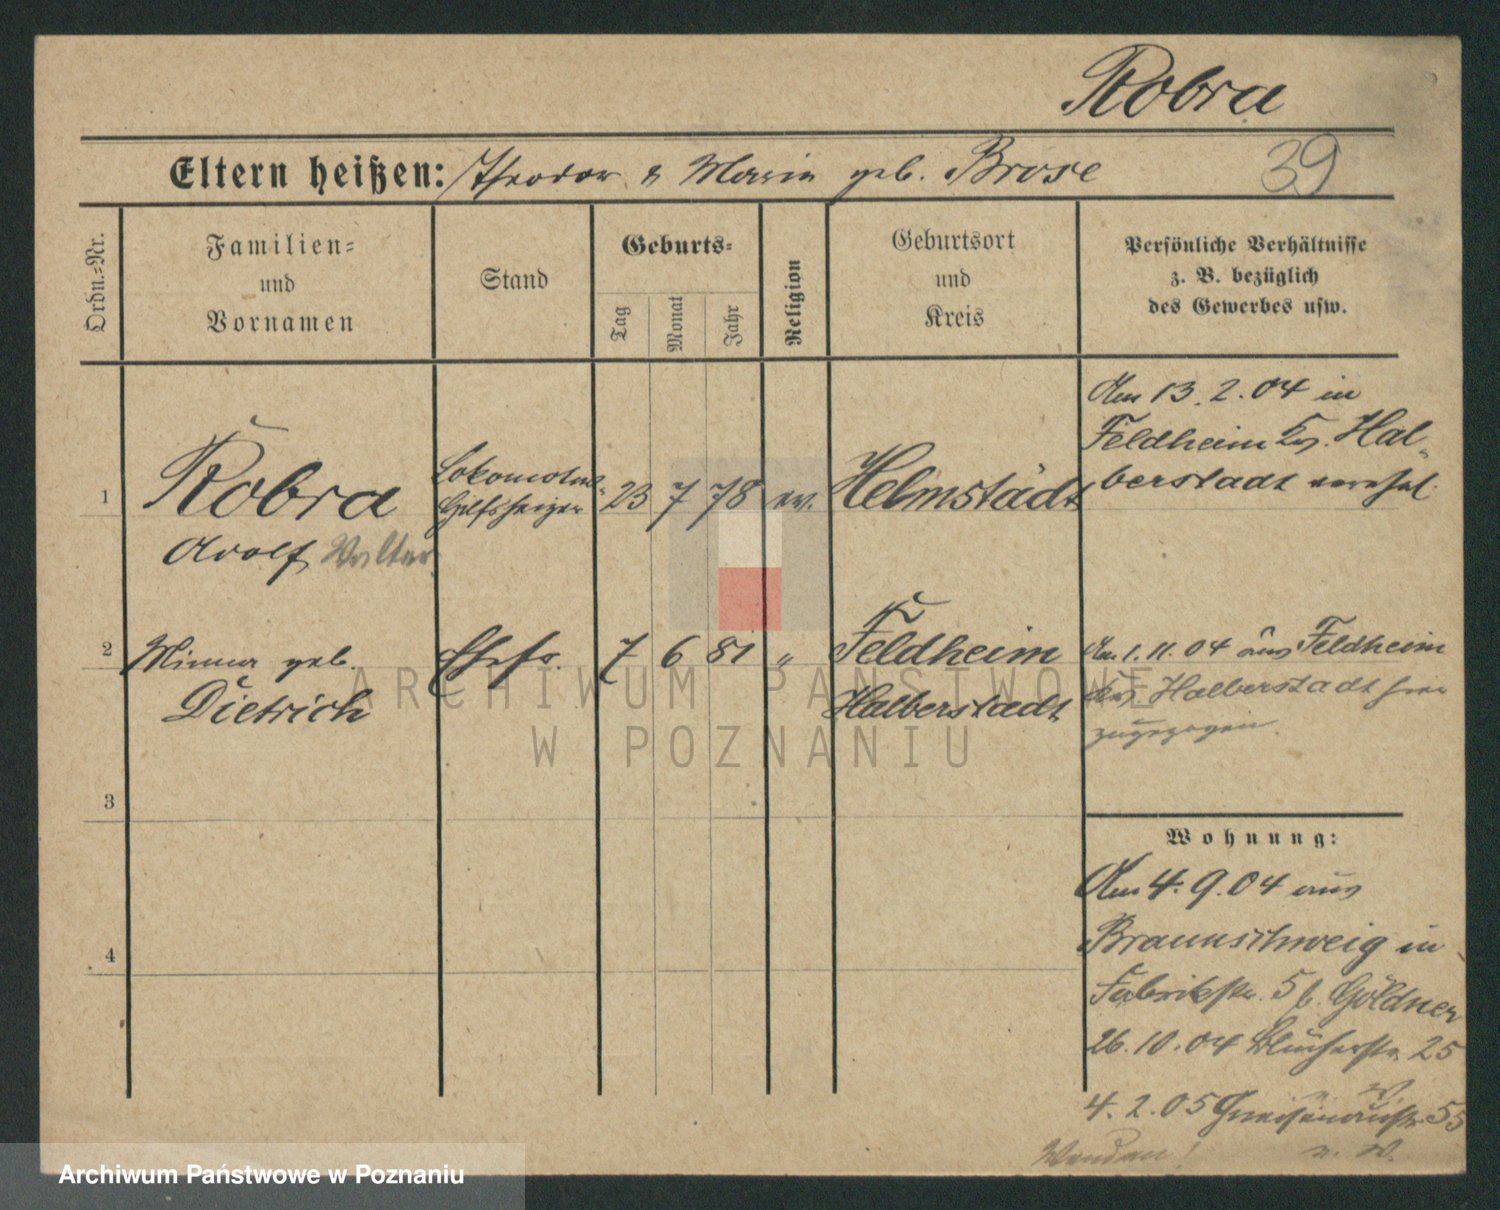 Robra
Eltern heißen: Theodor & Marie geb. Brose 39
Ordn.=Nr.
Familien=
und
Vornamen
Stand
Geburts=
Tag
Monat
Jahr
Religion
Geburtsort
und
Kreis
Persönliche Verhältnisse
z. B. bezüglich
des Gewerbes usw.
1
Robra
Adolf Walter
Lokomotiv-
hilfsheizer
23 7 78 ev.
Helmstädt
Am 13.2.04 in
Feldheim Krs. Hal-
berstadt verehel.
2
Minna geb.
Dietrich
Ehefr.
7 6 81 "
Feldheim
Halberstadt
Am 1.11.04 aus Feldheim
Krs. Halberstadt hier
zugezogen.
3
4
Wohnung:
Am 4.9.04 aus
Braunschweig in
Fabrikstr. 5 b. Göldner
26.10.04 Blücherstr. 25
4.2.05 Gneisenaustr. 55
Wenden!
ARCHIWUM PAŃSTWOWE
W POZNANIU
Archiwum Państwowe w Poznaniu